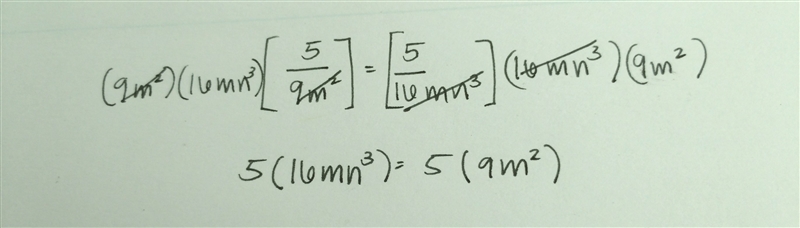 (9m²)(16mn³)[5/9m²] = [5/16mn³](16mn³)(9m²)
5(16mn³) = 5(9m²)